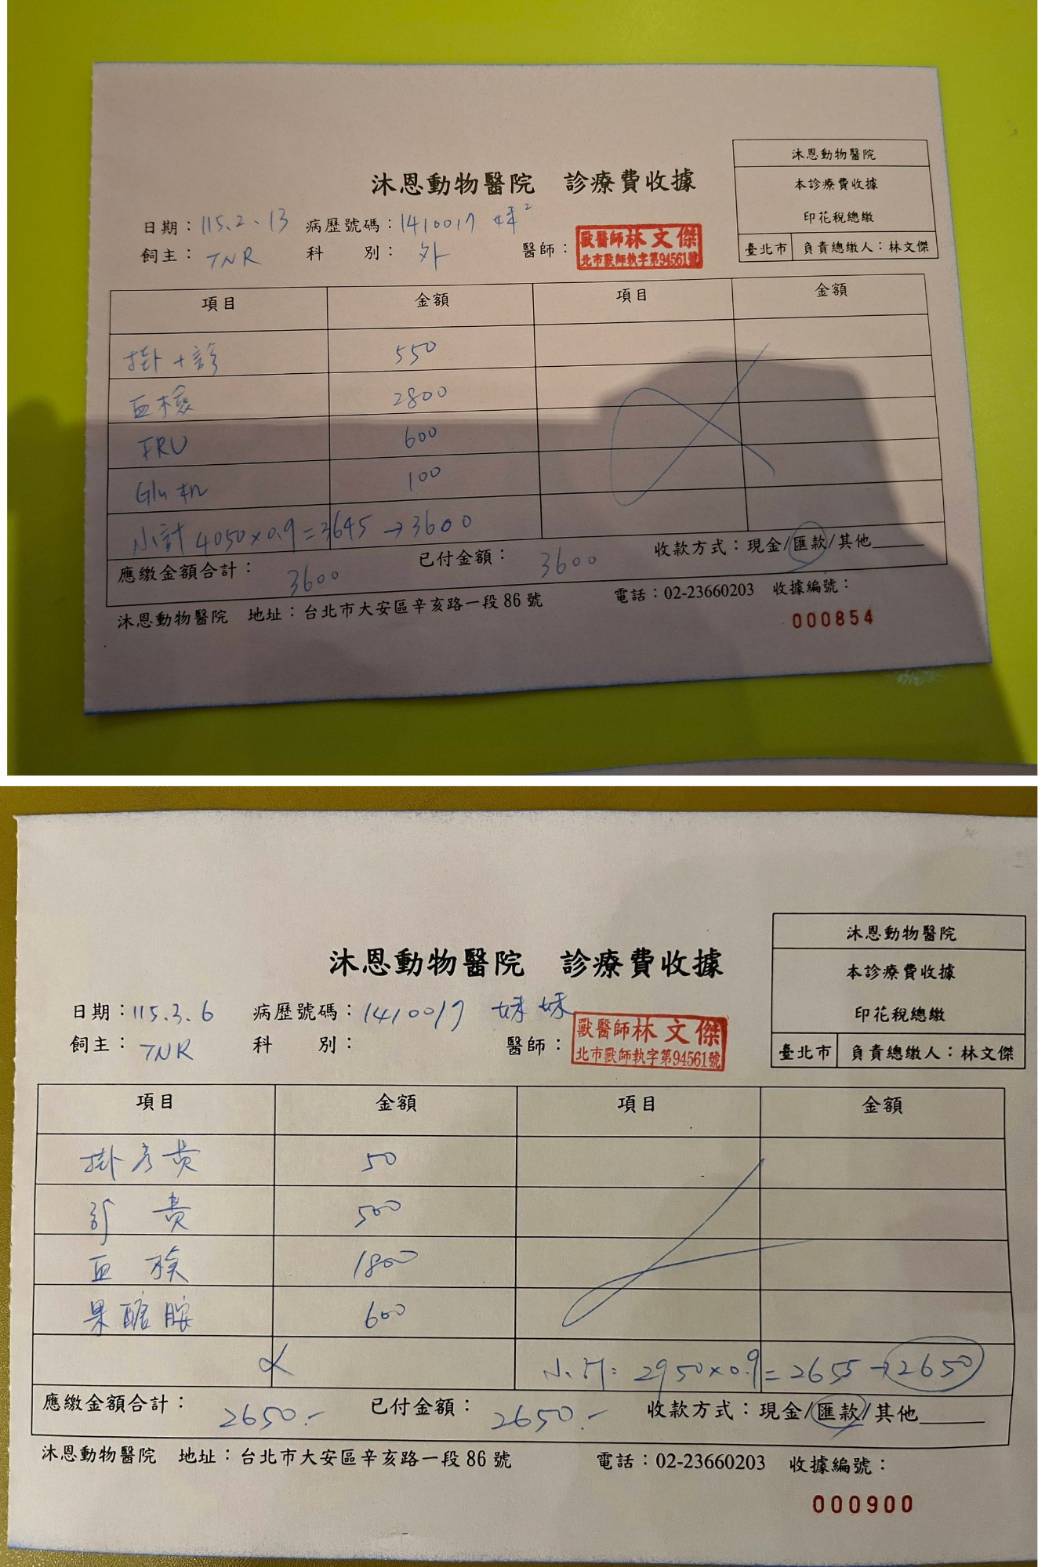 沐恩動物醫院
本診療費收據
印花稅總繳
臺北市 負責總繳人：林文傑
沐恩動物醫院 診療費收據
日期：115.2.13 病歷號碼：1410017 妹²
飼主：TNR 科 別：外 醫師：獸醫師林文傑
北市獸師執字第94561號
項目 金額 項目 金額
掛+診 550
血檢 2800
FRU 600
Glu 100
小計 4050×0.9=3645→3600
應繳金額合計：3600 已付金額：3600 收款方式：現金/匯款/其他
沐恩動物醫院 地址：台北市大安區辛亥路一段86號 電話：02-23660203 收據編號：
000854
沐恩動物醫院
本診療費收據
印花稅總繳
臺北市 負責總繳人：林文傑
沐恩動物醫院 診療費收據
日期：115.3.6 病歷號碼：1410017 妹妹
飼主：TNR 科 別： 醫師：獸醫師林文傑
北市獸師執字第94561號
項目 金額 項目 金額
掛号費 50
診費 500
血檢 1800
果醣胺 600
小計：2950×0.9=2655→2650
應繳金額合計：2650.- 已付金額：2650.- 收款方式：現金/匯款/其他
沐恩動物醫院 地址：台北市大安區辛亥路一段86號 電話：02-23660203 收據編號：
000900